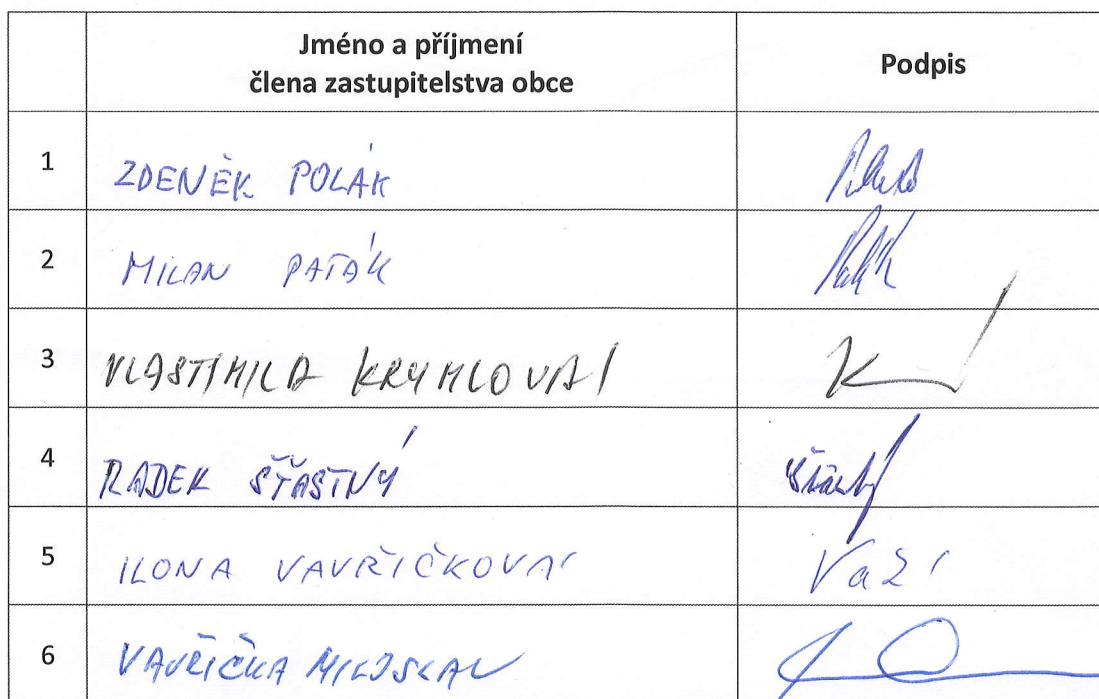 Jméno a příjmení
člena zastupitelstva obce
Podpis
1 ZDENĚK POLÁK
2 MILAN PAŤÁK
3 VLASTIMILA KRYMLOVÁ
4 RADEK ŠŤASTNÝ Šťastný
5 ILONA VAVŘIČKOVÁ
6 VAVŘIČKA MILOSLAV